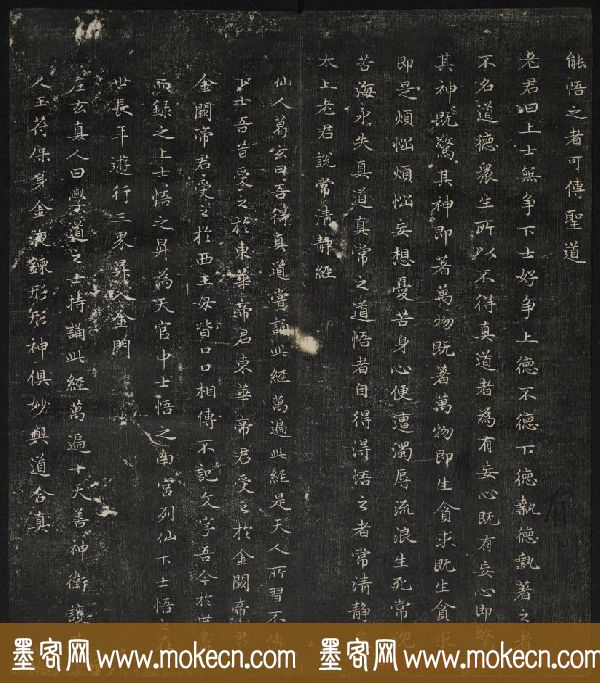 能悟之者可傳聖道
老君曰上士無爭下士好爭上德不德下德執德執著之者
不名道德衆生所以不得真道者為有妄心既有妄心即驚
其神既驚其神即著萬物既著萬物即生貪求既生貪求
即是煩惱煩惱妄想憂苦身心便遭濁辱流浪生死常沉
苦海永失真道真常之道悟者自得得悟之者常清靜
太上老君說常清靜經
仙人葛玄曰吾得真道嘗誦此經萬遍此經是天人所習不傳
下士吾昔受之於東華帝君東華帝君受之於金闕帝君
金闕帝君受之於西王母皆口口相傳不記文字吾今於世書
而錄之上士悟之昇為天官中士悟之南宮列仙下士悟之在
世長年遊行三界昇入金門
左玄真人曰學道之士持誦此經萬遍十天善神衛護
人玉符保身金液鍊形形神俱妙與道合真
墨客网 www.mokecn.com 墨客网 www.mokecn.com